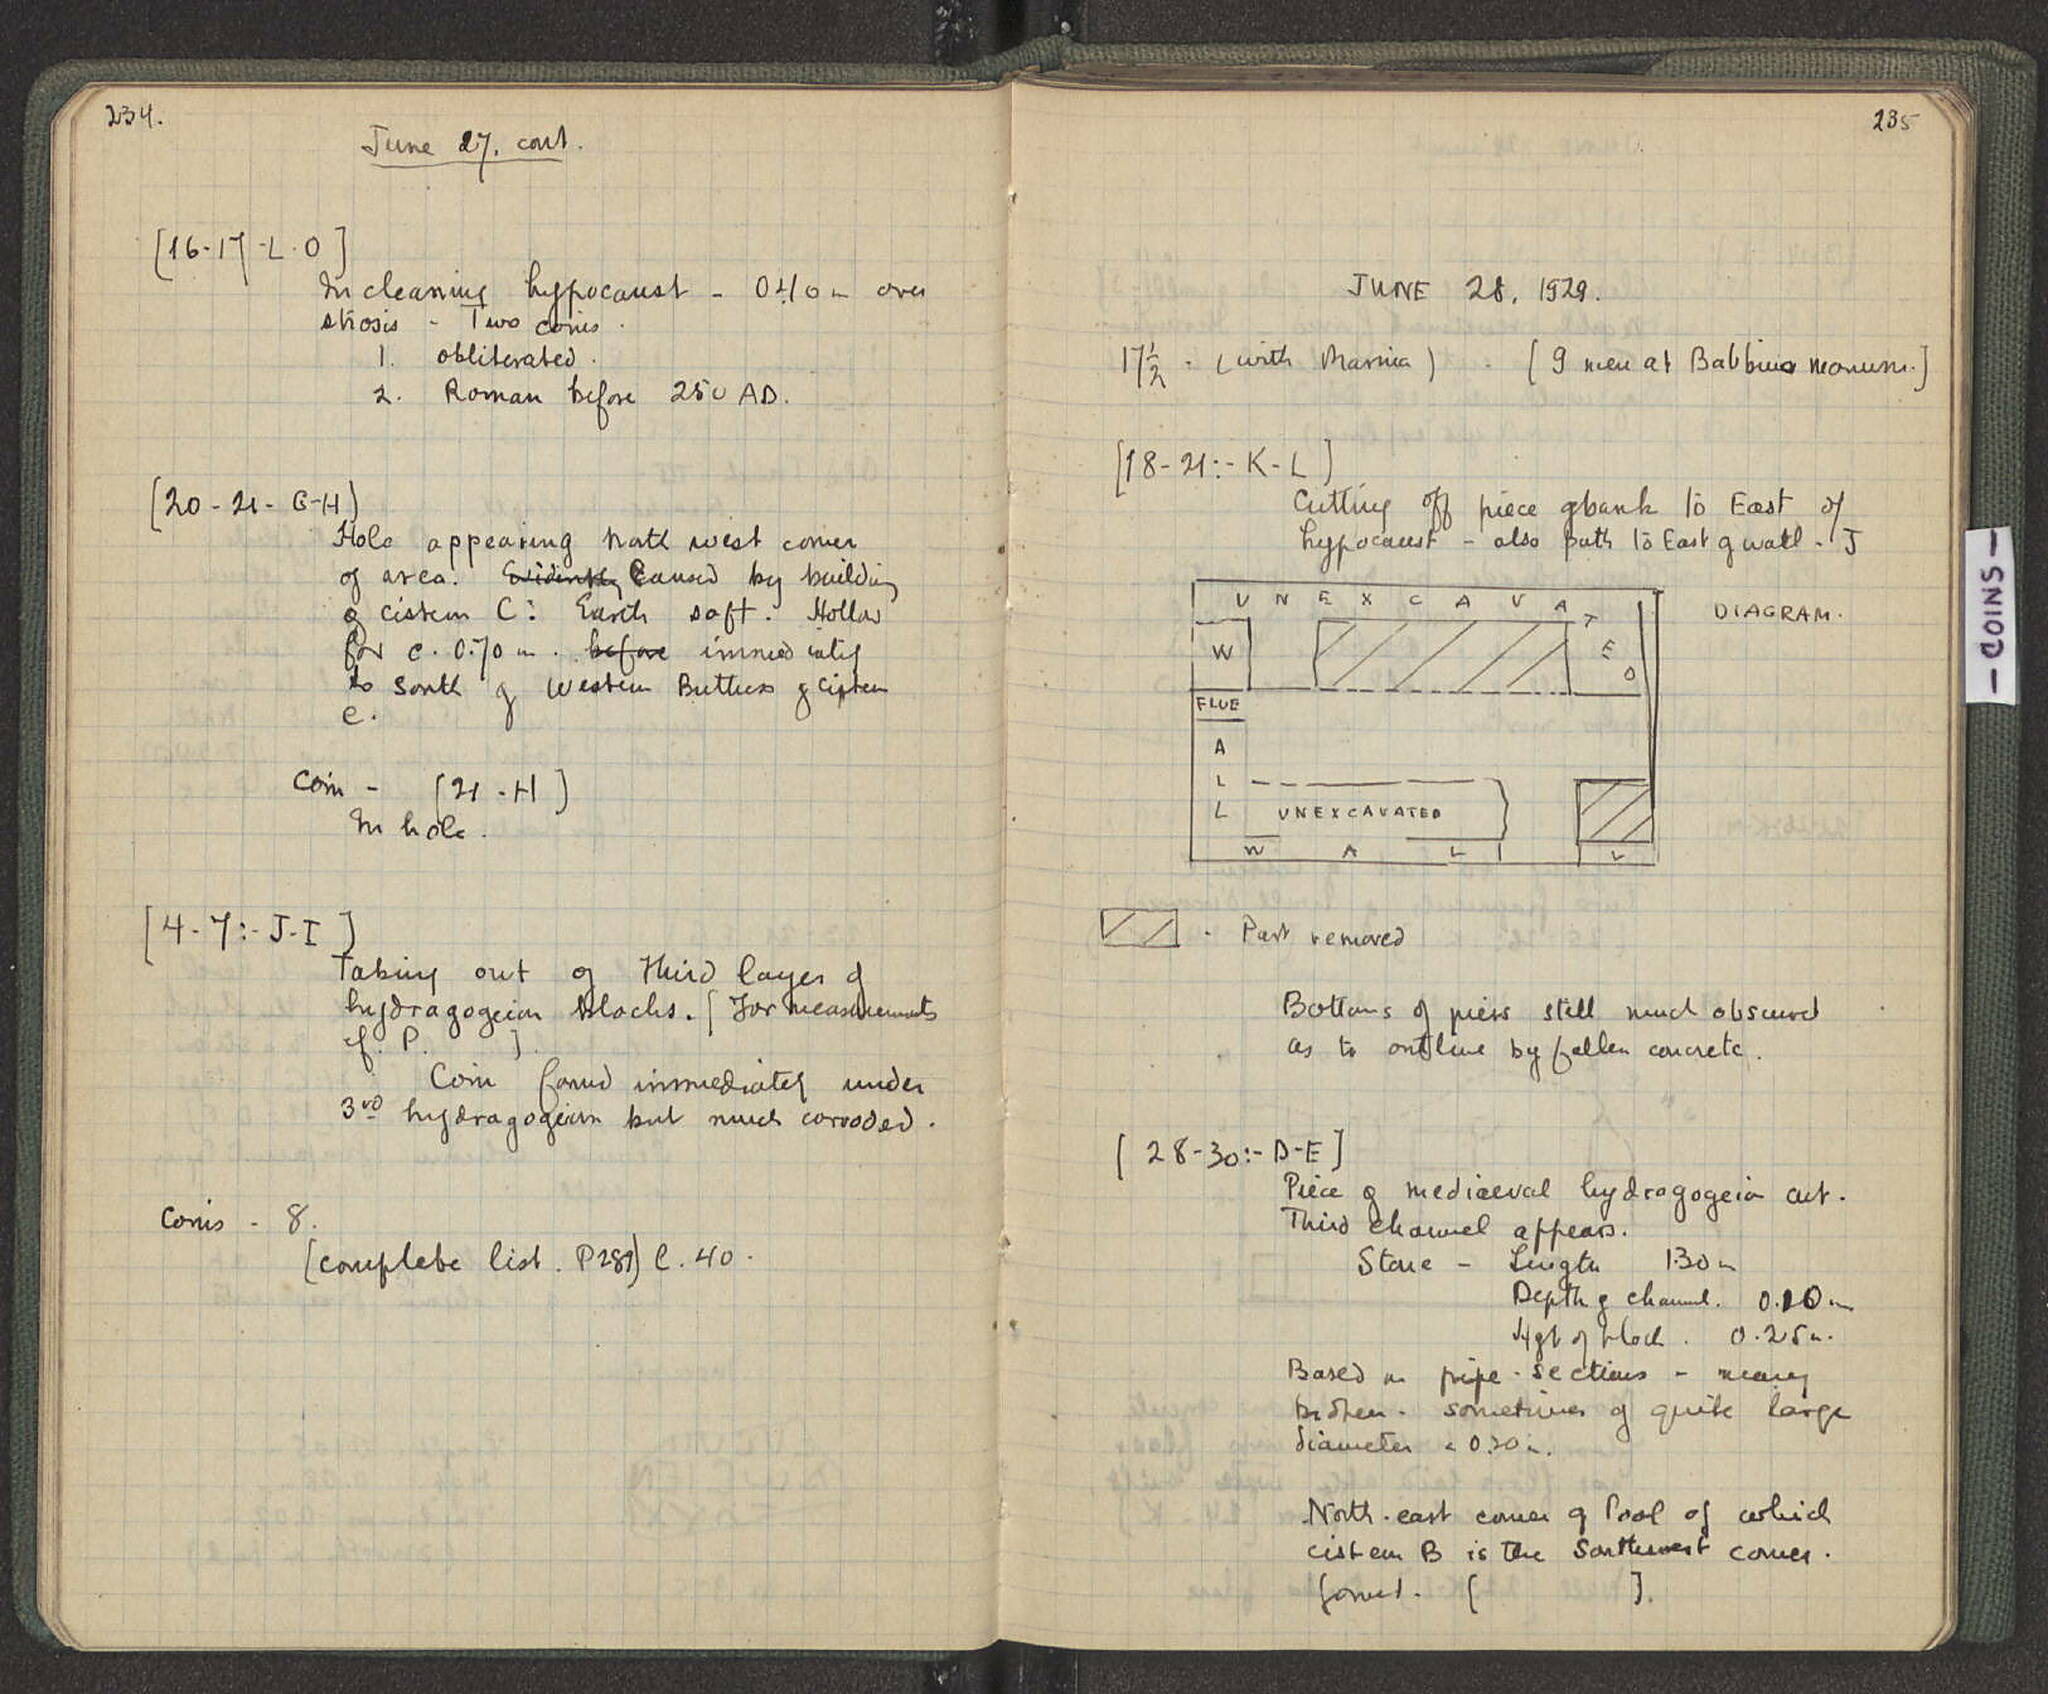 234.
June 27. cont.
[16-17-L-O]
In cleaning hypocaust - 0.40 m over
strosis - Two coins.
1. obliterated.
2. Roman before 250 AD.
[20-21-G-H]
Hole appearing north west corner
of area. Evidently Caused by building
of cistern C: Earth soft. Hollow
for c. 0.70 m. before immediately
to South of Western Buttress of cistern
C.
Coin - [21-H]
In hole.
[4-7:-J-I]
Taking out of third layer of
hydragogeion blocks. [For measurements
cf. P. ].
Coin found immediately under
3rd hydragogeion but much corroded.
Coins - 8.
[complete list. P289] C. 40.
235
JUNE 28, 1929.
17½ - (with Marnia) - [9 men at Babbius monum.]
[18-21:-K-L]
Cutting off piece of bank to East of
hypocaust - also path to East of wall - J
DIAGRAM.
UNEXCAVATED
W
FLUE
A
L
L
UNEXCAVATED
W A L L
- Part removed
Bottoms of piers still much obscured
as to outline by fallen concrete.
[28-30:-D-E]
Piece of mediaeval hydragogeion cut.
Third channel appears.
Stone - Length 1.30 m
Depth of channel. 0.10 m
Hgt of block. 0.25 m.
Based on pipe-sections - many
broken - sometimes of quite large
diameter c 0.20 m.
North-east corner of Pool of which
cistern B is the Southwest corner.
found. [ ].
- COINS -